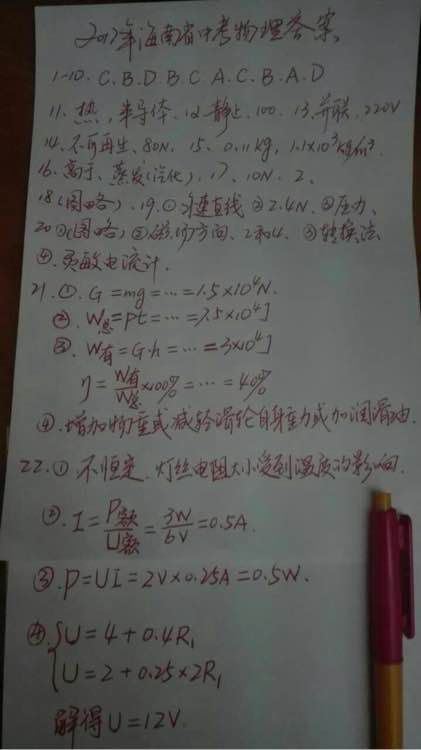 2017年海南省中考物理答案
1-10. C. B. D. B. C. A. C. B. A. D
11. 热, 半导体. 12. 静止, 100. 13. 并联, 220V
14. 不可再生、80N. 15. 0.11kg, 1.1×10³kg/m³.
16. 高于、蒸发(汽化). 17. 10N. 2.
18(图略). 19. ①匀速直线 ②2.4N. ③压力、
20 ①(图略) ②磁场方向、2和4. ③转换法
④. 灵敏电流计.
21. ①. G=mg=…=1.5×10⁴N.
②. W总=Pt=…=7.5×10⁴J
③. W有=G·h=…=3×10⁴J
η=W有/W总×100%=…=40%
④. 增加物重或减轻滑轮自身重力或加润滑油.
22. ① 不恒定. 灯丝电阻大小受到温度的影响.
②. I=P额/U额=3W/6V=0.5A.
③ P=UI=2V×0.25A=0.5W.
④ {U=4+0.4R₁
U=2+0.25×2R₁
解得U=12V.